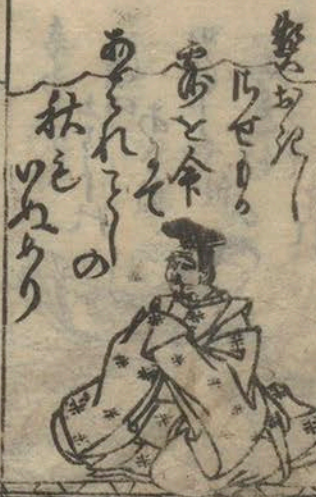 契おきし
させもか
露を命
にて
あはれことしの
秋も
いぬめり